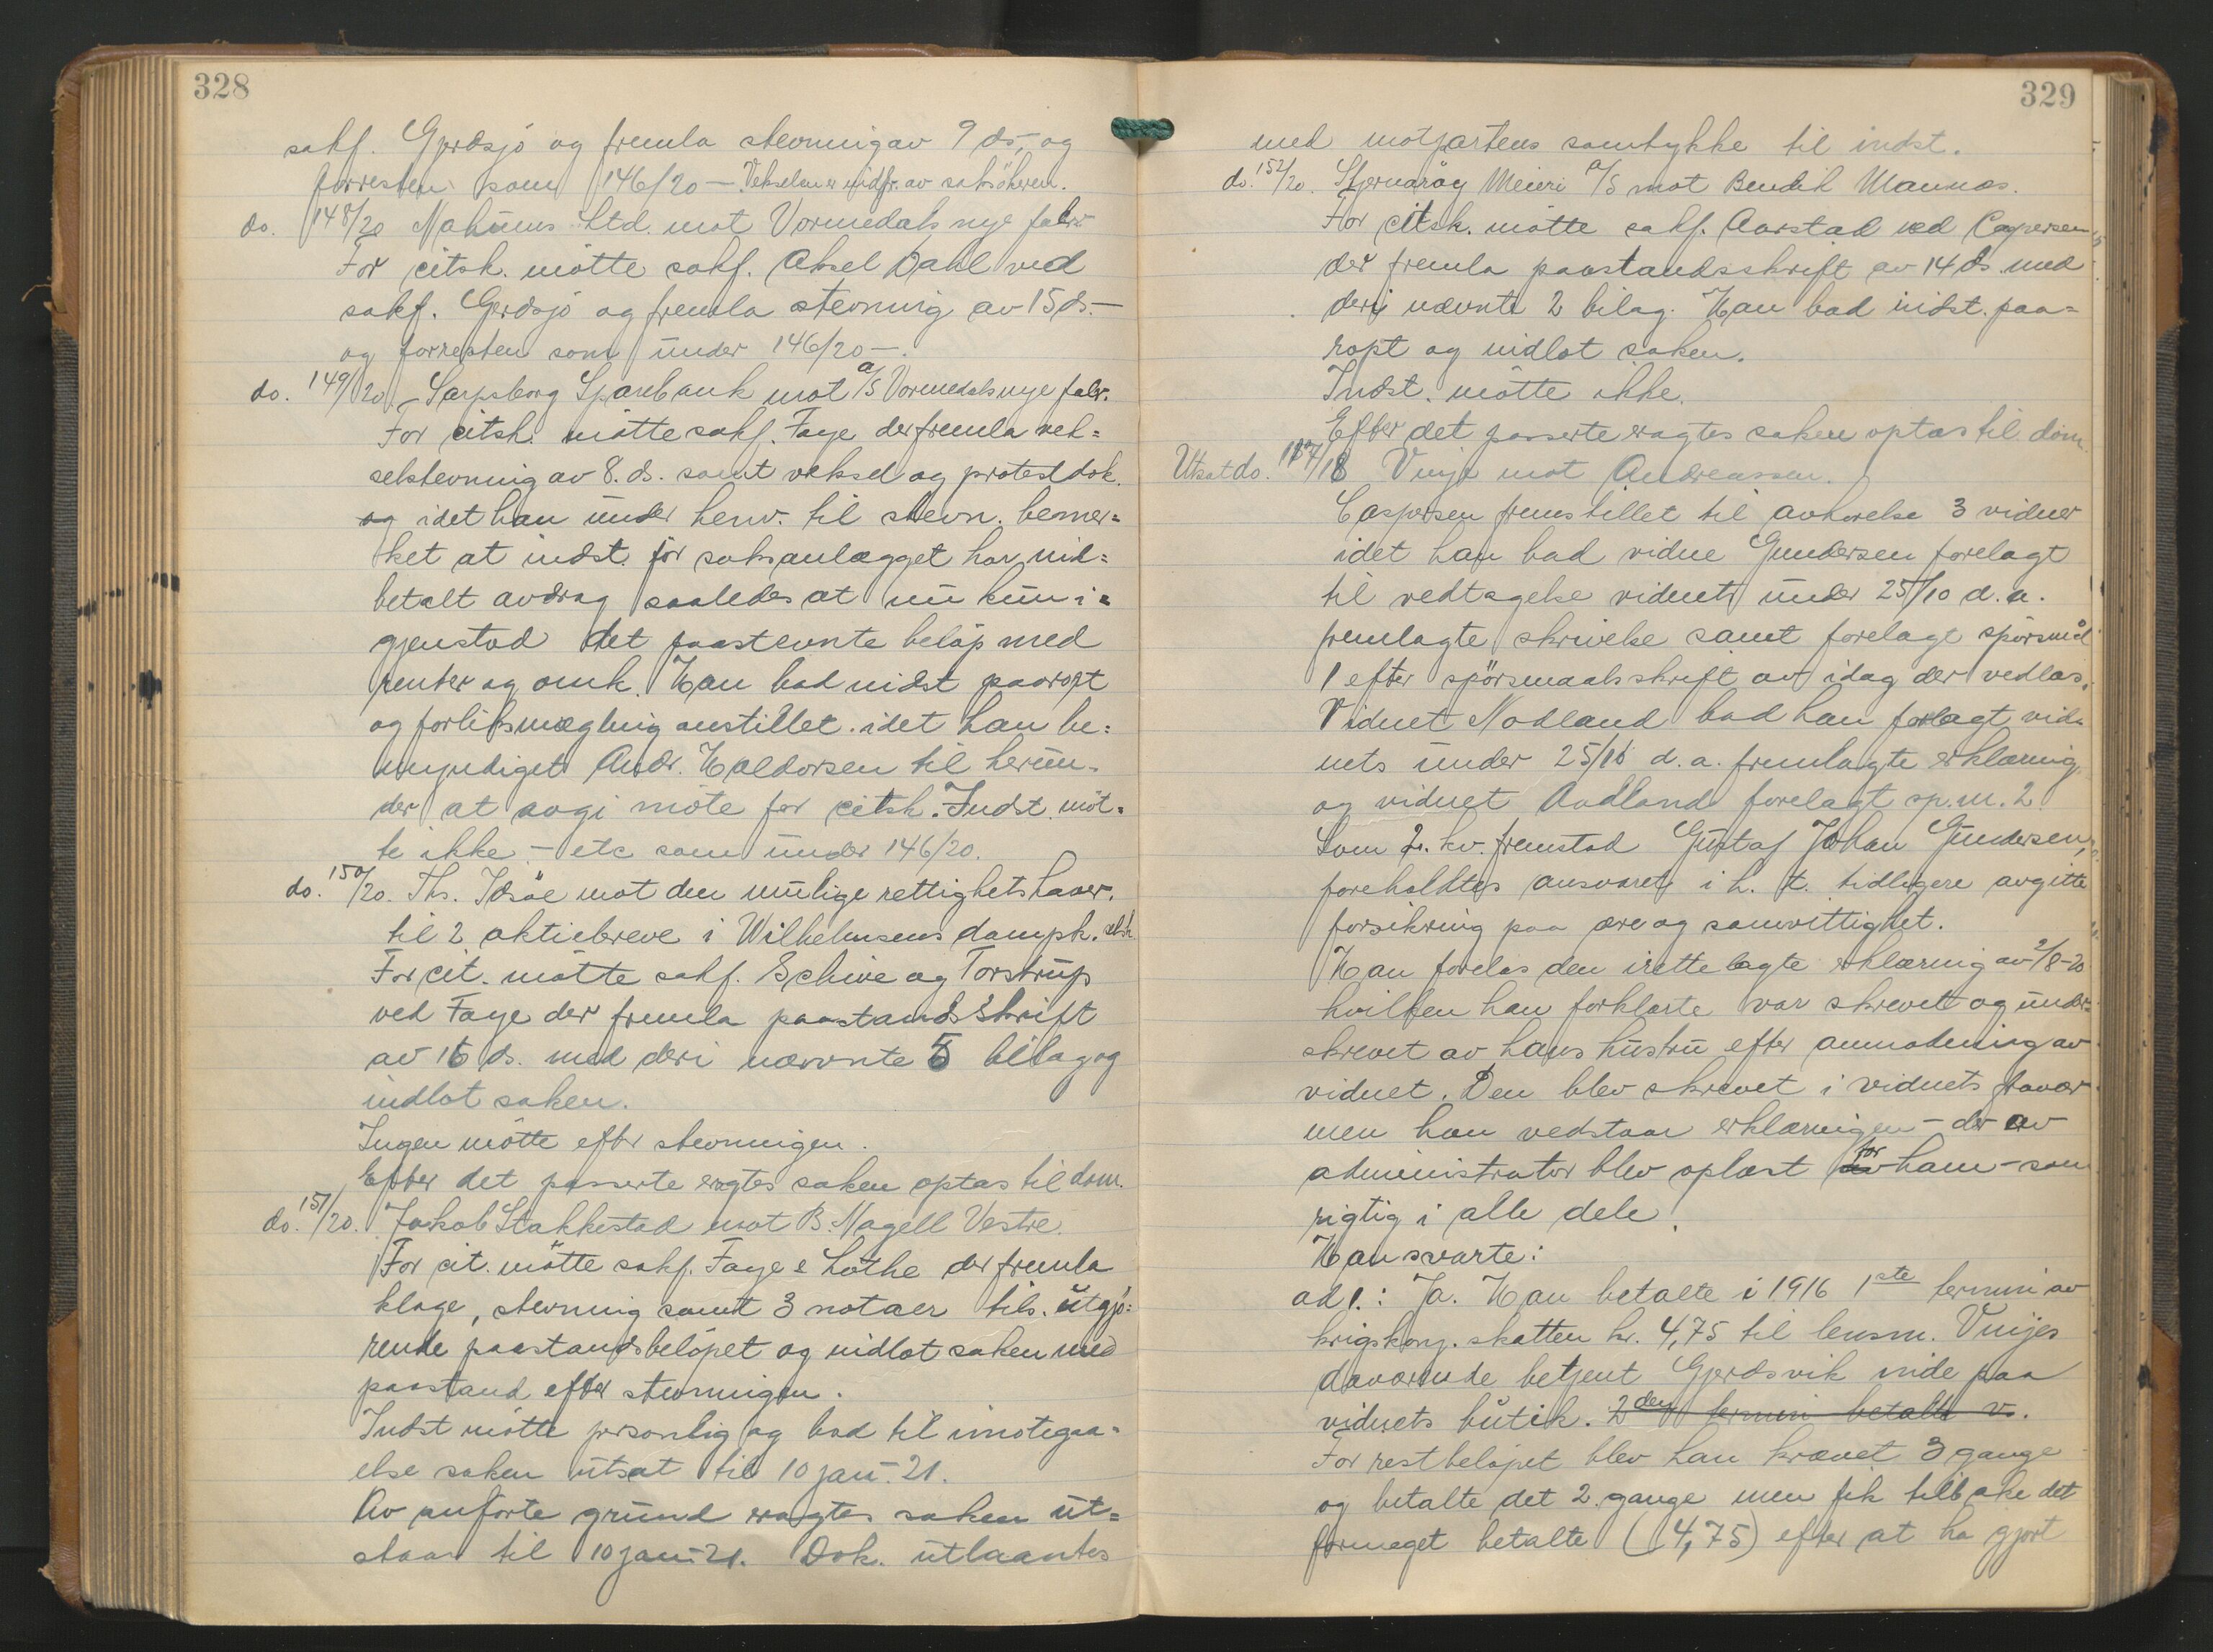 328
sakf. Gjerdsjö og fremla stevning av 9 ds, og
forresten som 146/20 — Vekselen er indfr. av saksökeren.
do. 148/20 Nahums Ltd. mot Vormedals nye fabr.
For citsk. mötte sakf. Aksel Dahl ved
sakf. Gerdsjö og fremla stevning av 15 ds. —
og forresten som under 146/20 —.
do. 149/20 – Sarpsborg Sparebank mot A/S Vormedals nye fabr.
For citsk. mötte sakf. Faye der fremla vek=
selstevning av 8. ds. samt veksel og protestdok.
og idet han under henv. til stevn. bemer=
ket at indst. för saksanlægget har ind=
betalt avdrag saaledes at nu kun i=
gjenstod det paastevnte belöp med
renter og omk. Han bad indst paaropt
og forliksmægling anstillet. idet han be=
myndiget Andr. Haldorsen til herun=
der at avgi möte for citsk. Indst. möt=
te ikke – etc som under 146/20.
do. 150/20. Ths. Idsöe mot den mulige rettighetshaver.
til 2 aktiebreve i Wilhelmsens dampsk. selsk
For cit. mötte sakf. Schive og Torstrup
ved Faye der fremla paastandsskrift
av 16 ds. med deri nævnte 5 bilag og
indlot saken.
Ingen mötte efter stevningen.
Efter det passerte eragtes saken optas til dom.
do. 151/20. Jakob Stakkestad mot B. Nagell Vestre.
For cit. mötte sakf. Faye & Lothe der fremla
klage, stevning samt 3 notaer tils. utgjö=
rende paastandsbelöpet og indlot saken med
paastand efter stevningen.
Indst mötte personlig og bad til imotegaa=
else saken utsat til 10 jan. 21.
Av anförte grund eragtes saken ut=
staar til 10 jan 21. Dok. utlaantes
329
med motpartens samtykke til indst.
do. 152/20. Stjernaröy Meieri A/S mot Bendik Mannes.
For citsk. mötte sakf. Aarstad ved Caspersen
der fremla paastandsskrift av 14 ds. med
deri nævnte 2 bilag. Han bad indst. paa=
ropt og indlot saken.
Indst. mötte ikke.
Efter det passerte eragtes saken optas til dom
Utsat do. 187/18 Vinje mot Andreassen.
Caspersen fremstillet til avhörelse 3 vidner
idet han bad vidne Gundersen forelagt
til vedtagelse vidnets under 25/10 d.a.
fremlagte skrivelse samt forelagt spörsmål
1 efter spörsmaalsskrift av idag der vedlas.
Vidnet Nodland bad han forlagt vid=
nets under 25/10 d.a. fremlagte erklæring
og vidnet Aadland forelagt sp.m. 2
Som 2. kv. fremstod Gustaf Johan Gundersen,
foreholdtes ansvaret i h. t. tidligere avgitte
forsikring paa ære og samvittighet.
Han forelas den irettelagte erklæring av 2/8-20
hvilken han forklarte var skrevet og under=
skrevet av hans hustru efter anmodning av
vidnet. Den blev skrevet i vidnets fravær
men han vedstaar erklæringen – der av
administrator blev oplæst av for ham – som
rigtig i alle dele.
Han svarte:
ad 1.: Ja. Han betalte i 1916 1ste termin av
krigskonj. skatten kr. 4,75 til lensm. Vinjes
daværende betjent Gjerdsvik inde paa
vidnets butik. 2den termin betalte v.
For restbelöpet blev han krævet 3 gange
og betalte det 2. gange men fik tilbake det
formeget betalte (4,75) efter at ha gjort